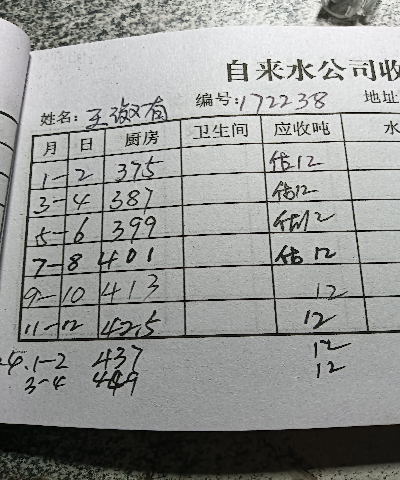 自来水公司收
姓名: 王淑有 编号: 172238 地址
月 日 厨房 卫生间 应收吨 水
1-2 375 估12
3-4 387 估12
5-6 399 估12
7-8 401 估12
9-10 413 12
11-12 425 12
4.1-2 437 12
3-4 449 12